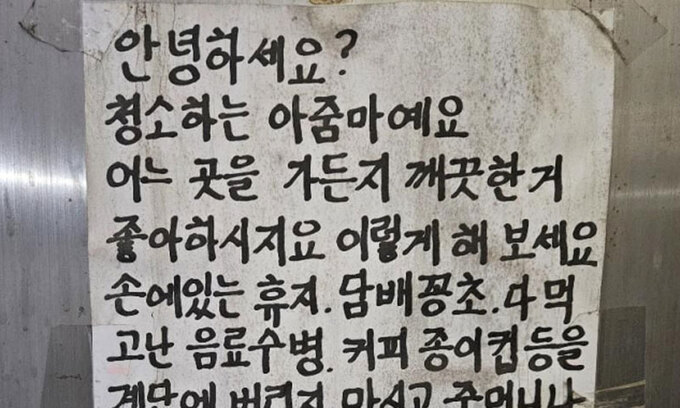 안녕하세요?
청소하는 아줌마예요
어느 곳을 가든지 깨끗한거
좋아하시지요 이렇게 해 보세요
손에있는 휴지. 담배꽁초. 다 먹
고난 음료수병. 커피 종이컵등을
계단에 버리지 마시고 주머니나